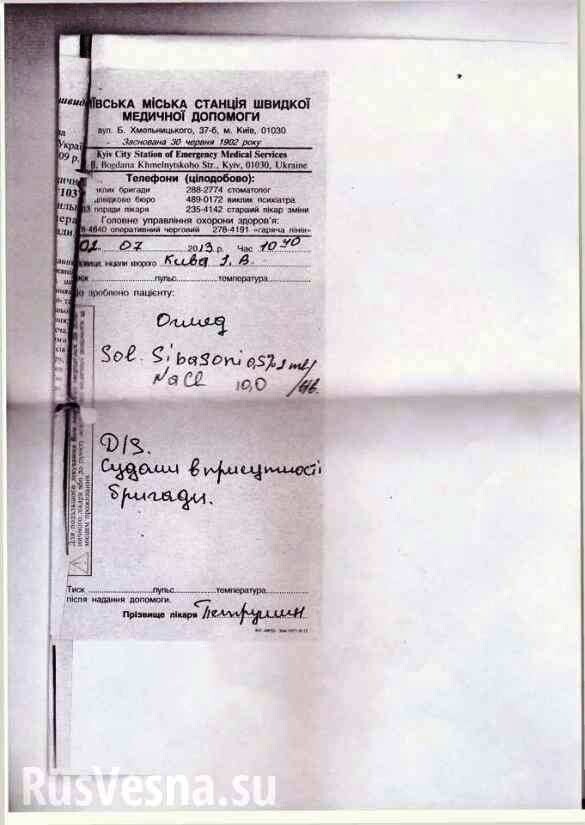 ИЇВСЬКА МІСЬКА СТАНЦІЯ ШВИДКОЇ
МЕДИЧНОЇ ДОПОМОГИ
вул. Б. Хмельницького, 37-б, м. Київ, 01030
Заснована 30 червня 1902 року
Kyiv City Station of Emergency Medical Services
B, Bogdana Khmelnytskoho Str., Kyiv, 01030, Ukraine
Телефони (цілодобово):
клик бригади 288-2774 стоматолог
відкове бюро 489-0172 виклик психіатра
03 поради лікаря 235-4142 старший лікар зміни
Головне управління охорони здоров'я:
8-4640 оперативний черговий 278-4191 «гаряча лінія»
02 07 2013 р. Час 10 40
ізвище, ініціали хворого Кива І. В.
тиск пульс температура
о зроблено пацієнту:
Огляд
Sol. Sibasoni 0,5% 2 ml
NaCl 10,0 в/в
D/S.
Судоми в присутності
бригади.
Тиск пульс температура
після надання допомоги.
Прізвище лікаря
Для подальшого лікування Вам
місцем проживання
RusVesna.su